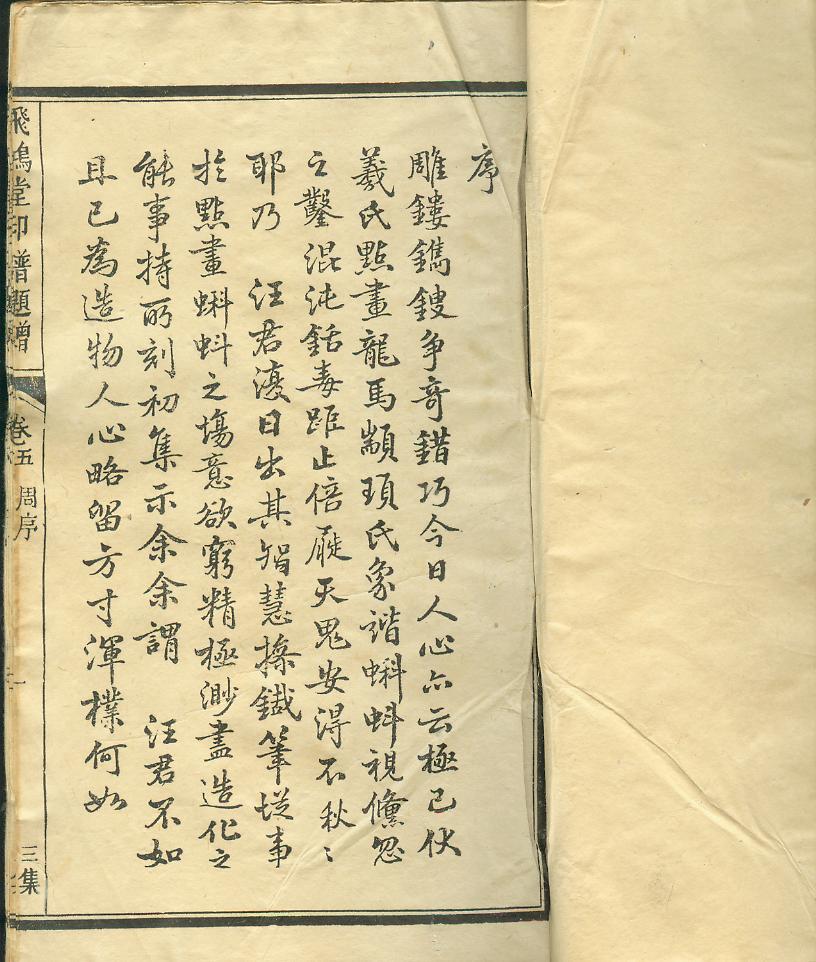 序
雕鏤鐫鎪争奇錯巧今日人心亦云極已伏
羲氏點畫龍馬顓頊氏象諧蝌蚪視儵忽
之鑿混沌銛毒距止倍蓰天鬼安得不秋〻
耶乃　汪君復日出其智慧操鐵筆從事
於點畫蝌蚪之場意欲窮精極渺盡造化之
能事持所刻初集示余余謂　汪君不如
且已為造物人心略留方寸渾樸何如
飛鴻堂印譜題贈
卷五
周序
三集